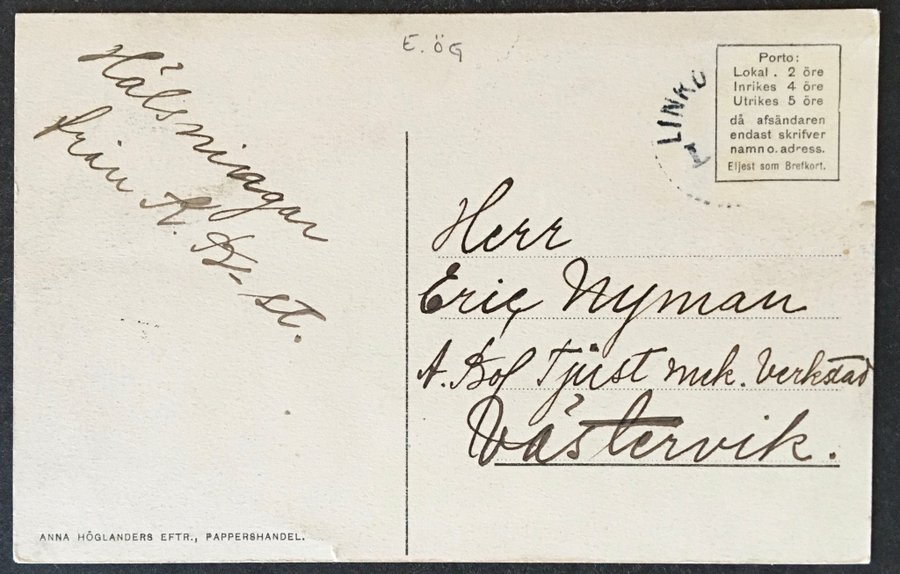 E. ÖG
Hälsningar
från A. B-st.
LINKÖ
1
Porto:
Lokal . 2 öre
Inrikes 4 öre
Utrikes 5 öre
då afsändaren
endast skrifver
namn o. adress.
Eljest som Brefkort.
Herr
Eric Nyman
A. Bol Tjust mek. Verkstad
Västervik.
ANNA HÖGLANDERS EFTR., PAPPERSHANDEL.